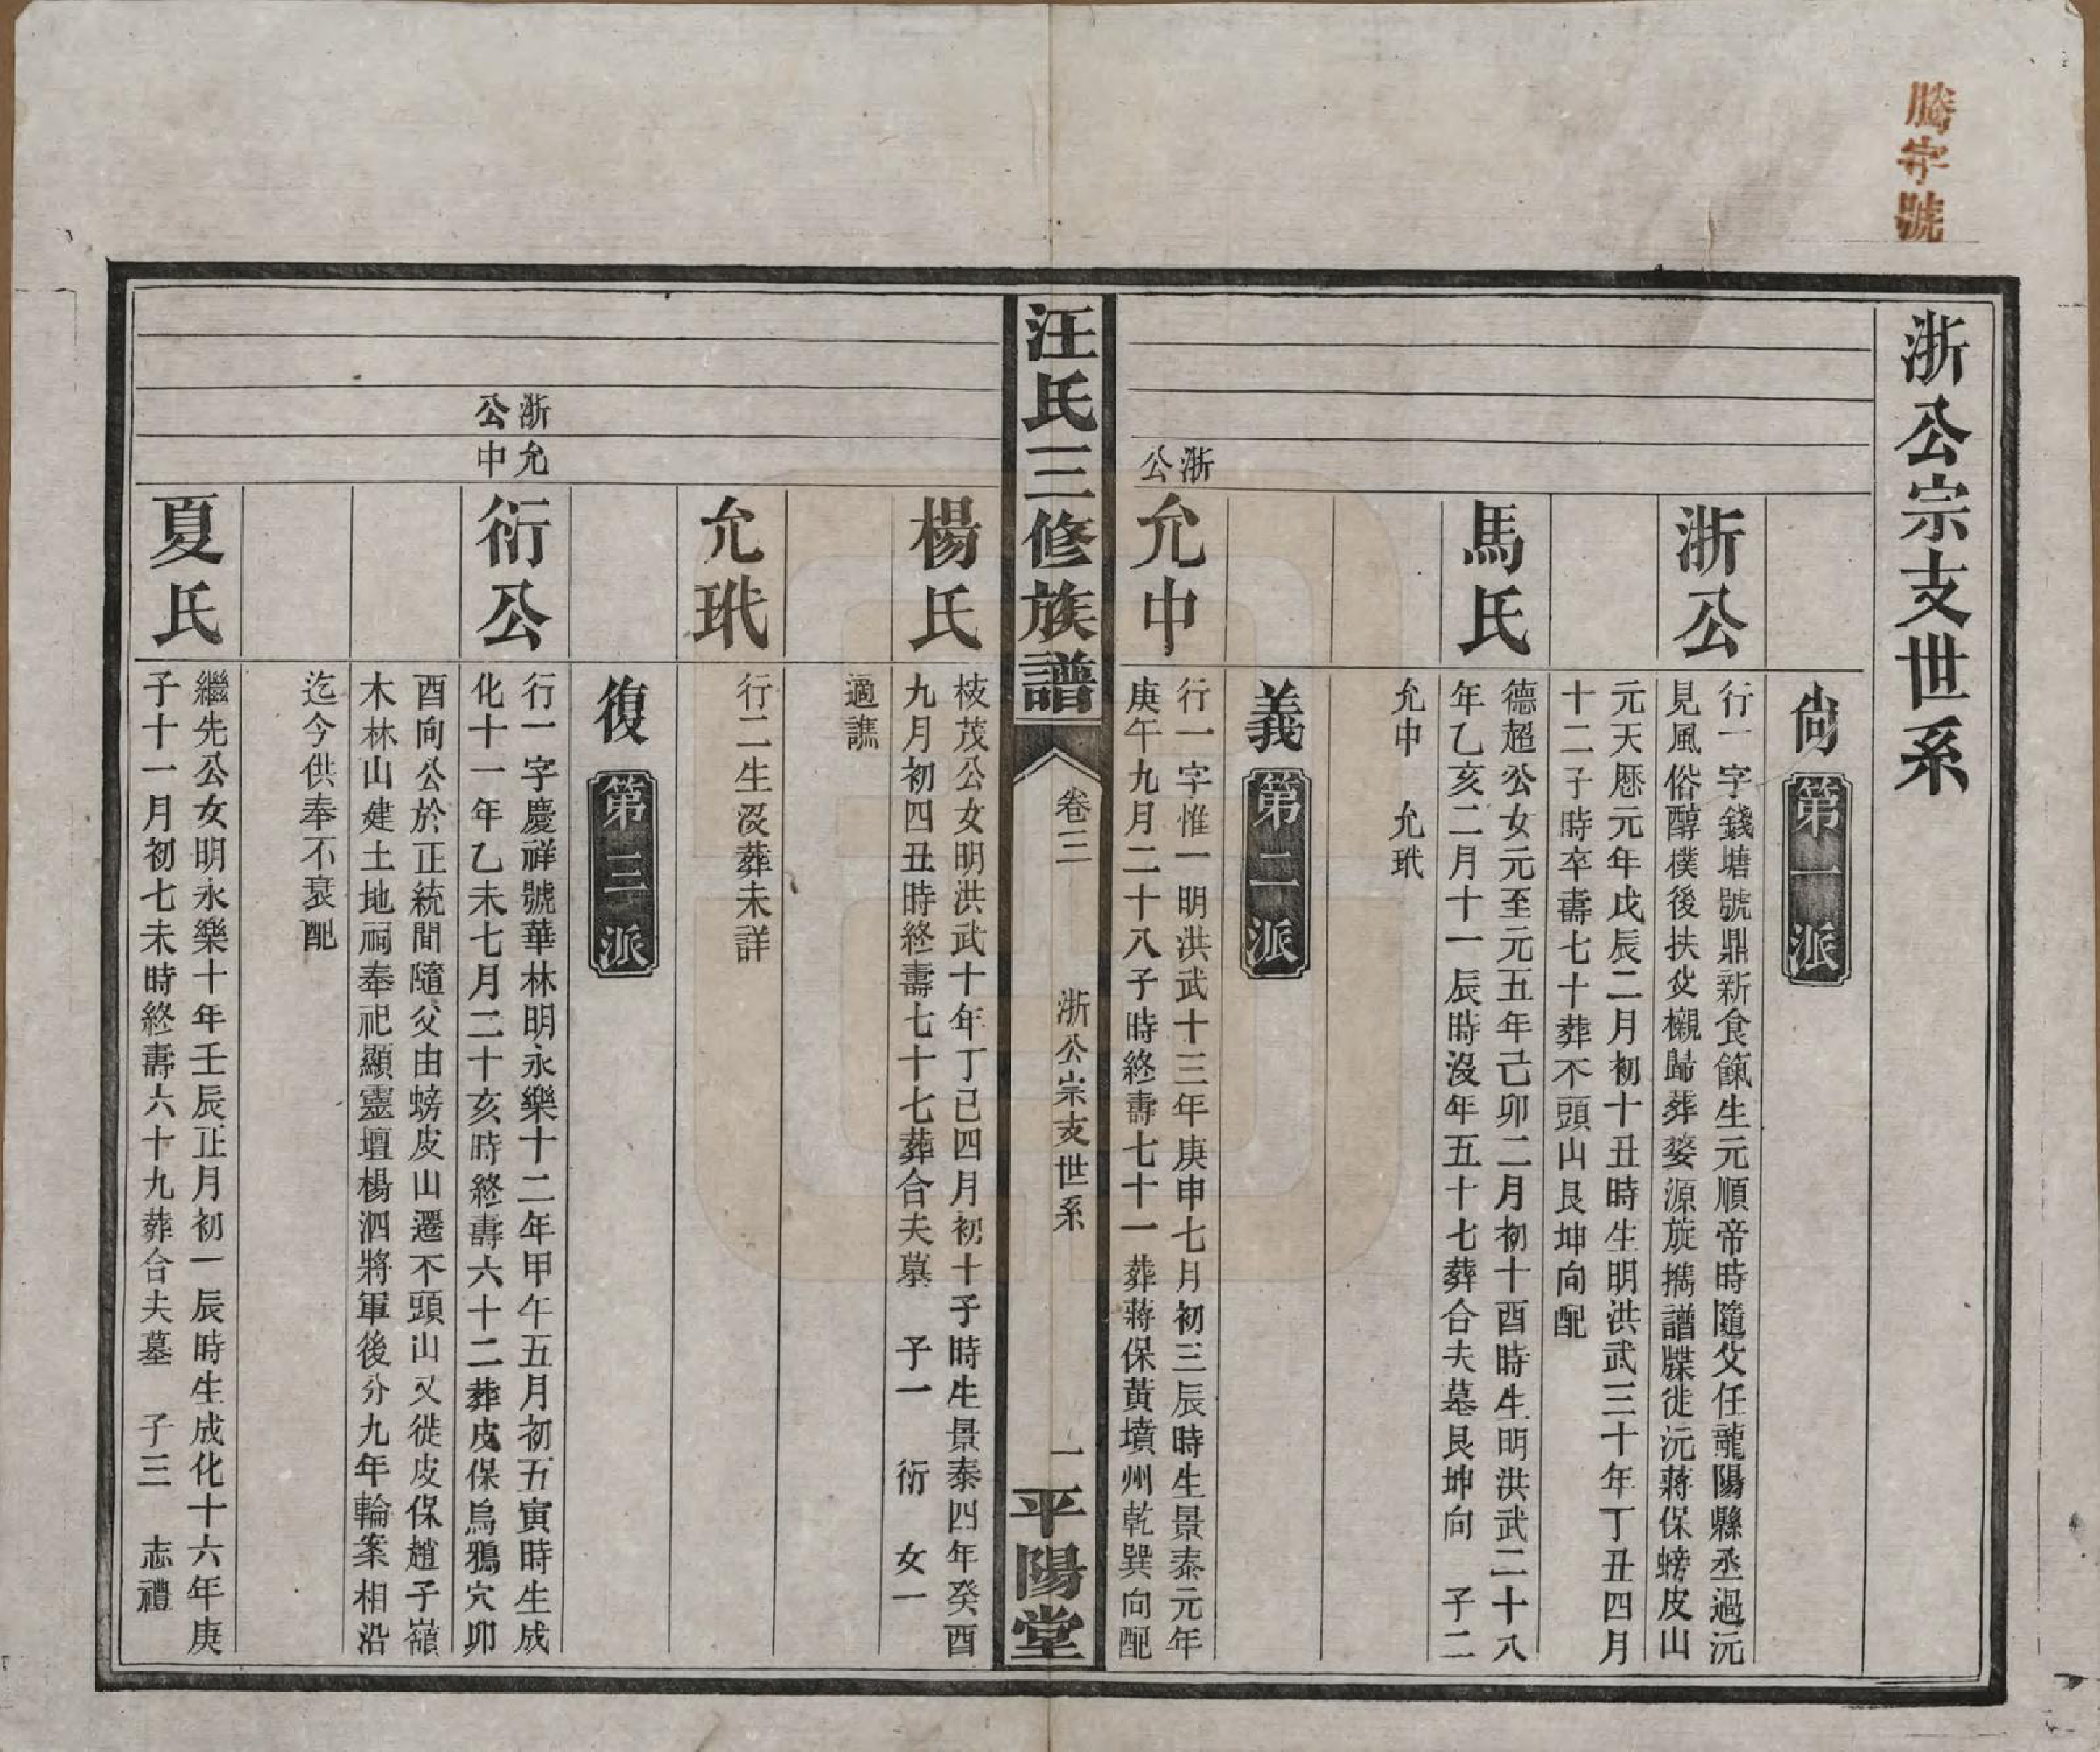 騰字號
浙公宗支世系
尙 第一派
浙公
行一字錢塘號鼎新食餼生元順帝時隨父任龍陽縣丞過沅
見風俗醇樸後扶父櫬歸葬婺源旋攜譜牒徙沅蔣保螃皮山
元天厯元年戊辰二月初十丑時生明洪武三十年丁丑四月
十二子時卒壽七十葬不頭山艮坤向配
馬氏
德超公女元至元五年己卯二月初十酉時生明洪武二十八
年乙亥二月十一辰時沒年五十七葬合夫墓艮坤向 子二
允中 允玳
義 第二派
浙公
允中
行一字惟一明洪武十三年庚申七月初三辰時生景泰元年
庚午九月二十八子時終壽七十一葬蔣保黃墳州乾巽向配
汪氏三修族譜
卷三
浙公宗支世系
一
平陽堂
楊氏
枝茂公女明洪武十年丁巳四月初十子時生景泰四年癸酉
九月初四丑時終壽七十七葬合夫墓 子一 衍 女一
適譙
允玳
行二生沒葬未詳
復 第三派
浙公
允中
衍公
行一字慶祥號華林明永樂十二年甲午五月初五寅時生成
化十一年乙未七月二十亥時終壽六十二葬皮保烏鴉穴卯
酉向公於正統間隨父由螃皮山遷不頭山又徙皮保趙子嶺
木林山建土地祠奉祀顯靈壇楊泗將軍後分九年輪案相沿
迄今供奉不衰配
夏氏
繼先公女明永樂十年壬辰正月初一辰時生成化十六年庚
子十一月初七未時終壽六十九葬合夫墓 子三 志禮